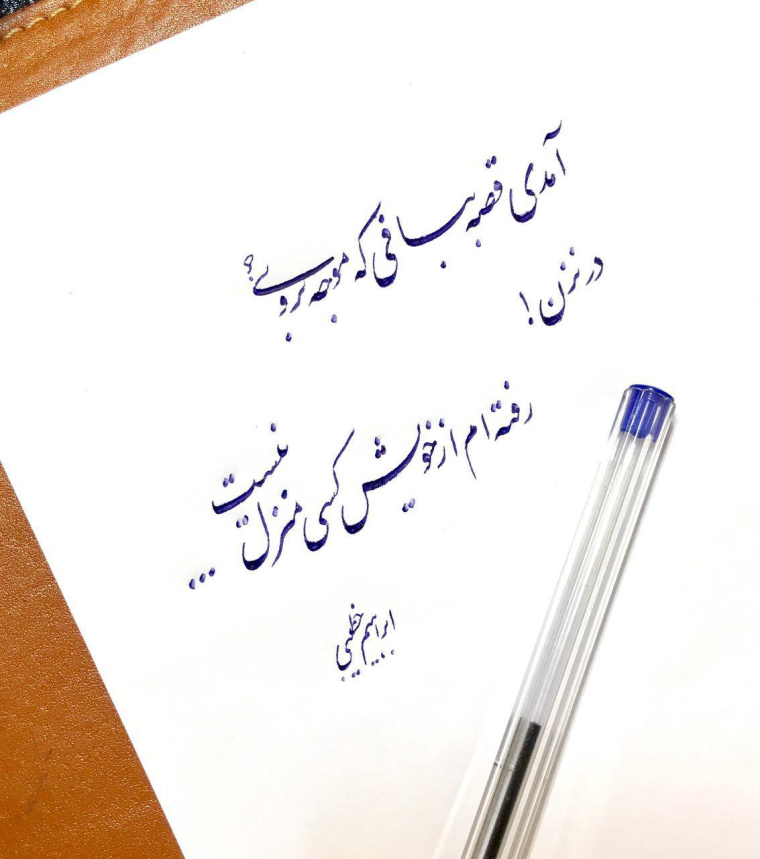 آمدی قصه ببافی که موجه بروی؟
در نزن!
رفته ام از خویش کسی منزل نیست
...
ابراهیم خطیبی